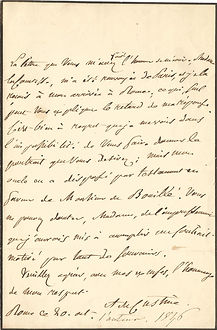 La lettre que vous m'avez fait l'honneur de m'écrire, Madame
la Comtesse, m'a été renvoyée de Paris et je la
reçois à mon arrivée à Rome, ce qui fait
peut vous expliquer le retard de ma réponse
bien à regret que je me vois dans
l'impossibilité de vous faire donner le
portrait que vous désirez; mais mon
oncle en a disposé par testament en
faveur de Monsieur de Bouillé. Vous
ne pouvez douter, Madame, de l'empressement
que j'aurais mis à accomplir un souhait
motivé par tant de souvenirs.
Veuillez agréer avec mes regrets, l'hommage
de mon respect.
A. de Custine
Rome ce 20. oct.
1846